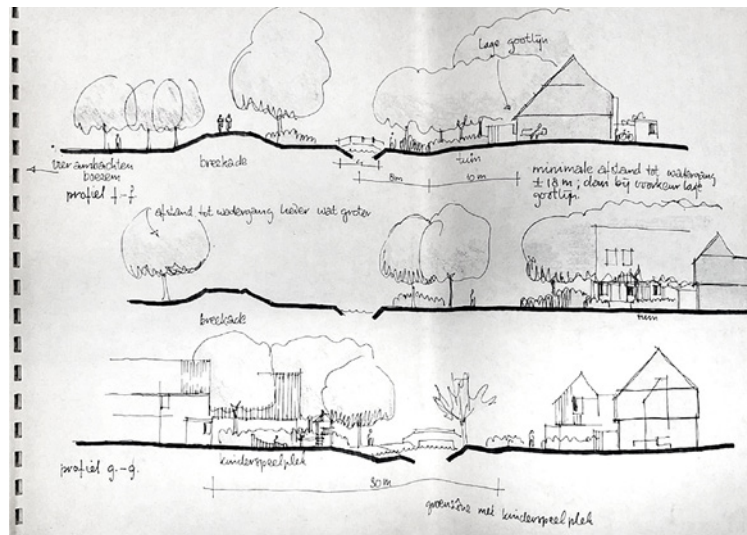 Lage gootlijn
vier ambachten
boezem
breekade
tuin
8m
10 m
minimale afstand tot watergang
± 18 m; dan bij voorkeur lage
gootlijn.
profiel f-f
afstand tot watergang liever wat groter
breekade
tuin
profiel g-g.
kinderspeelplek
30 m
groenzône met kinderspeelplek